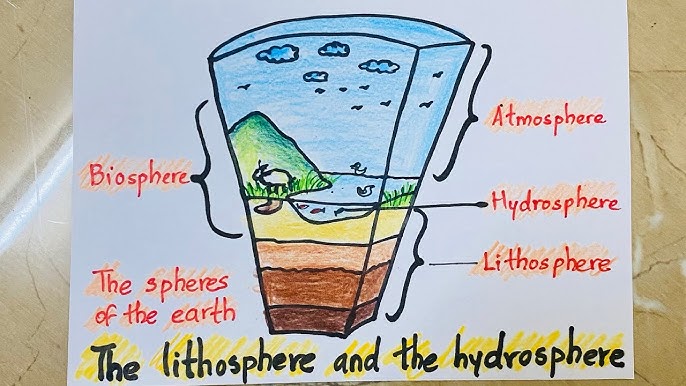 Atmosphere
Biosphere
Hydrosphere
Lithosphere
The spheres
of the earth
The lithosphere and the hydrosphere